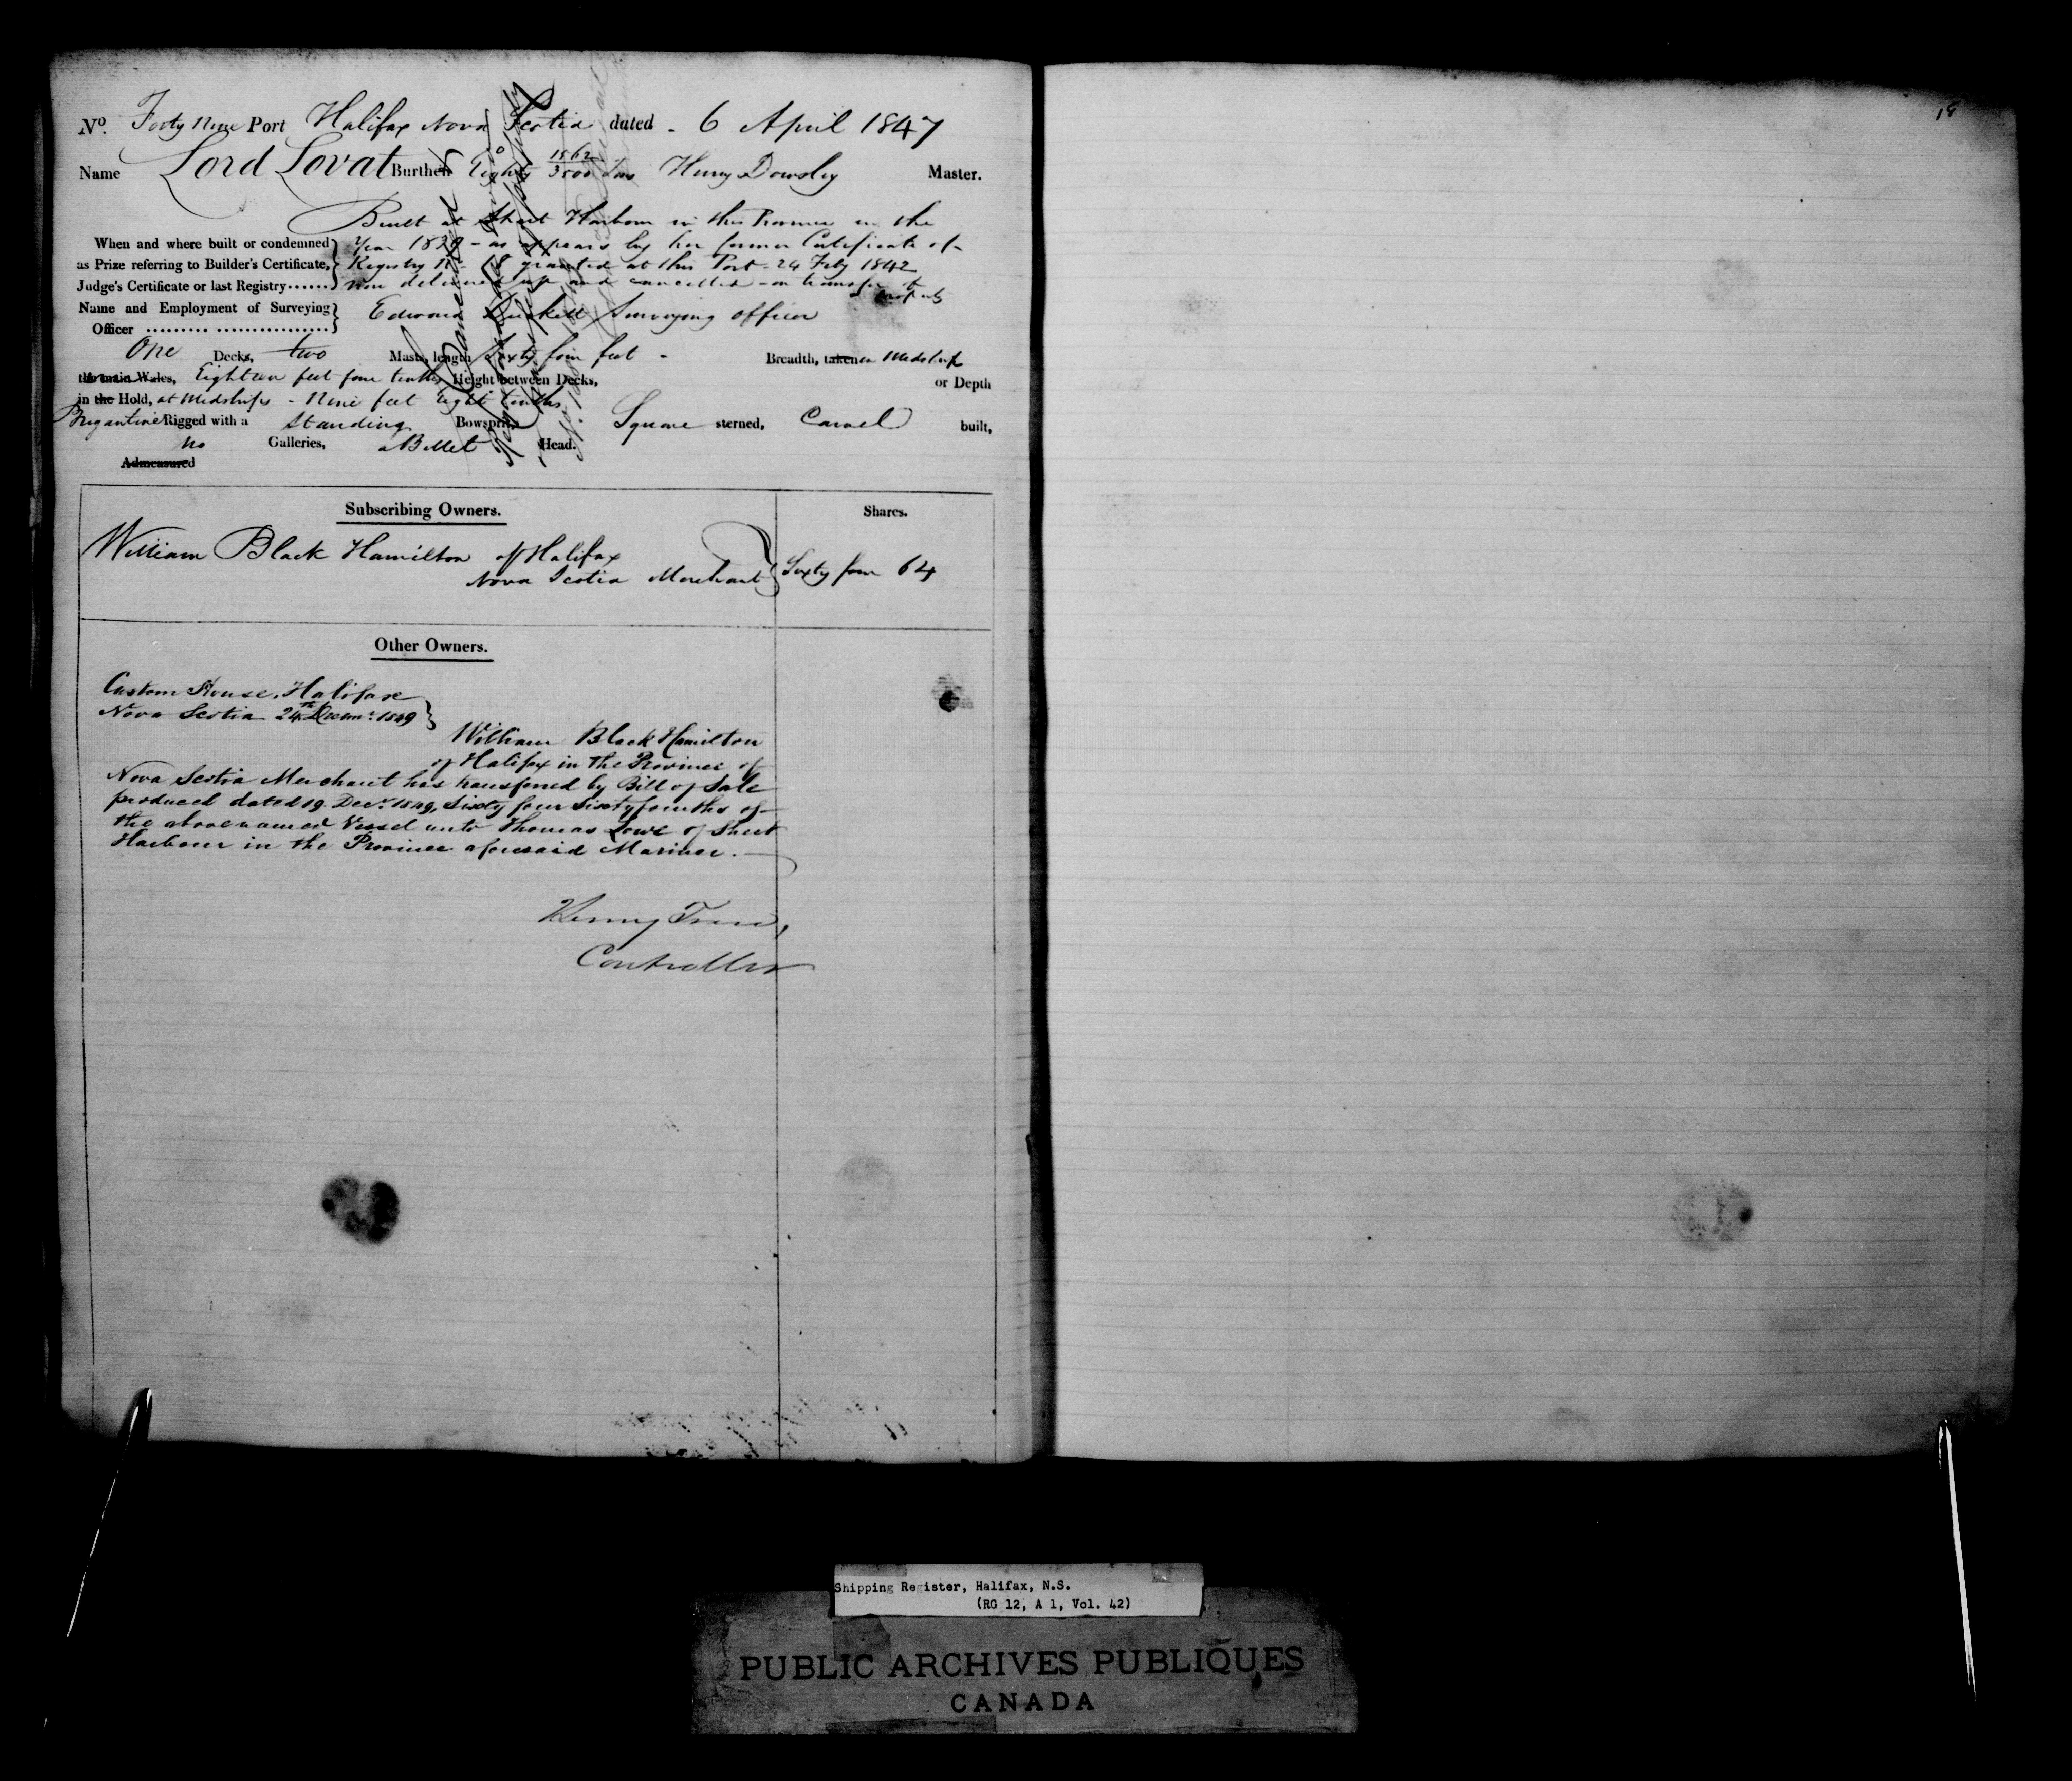 18
No. Forty Nine Port Halifax Nova Scotia dated - 6 April 1847
Name Lord Lovat Burthen Eighty 1562/3500 tons Henry Dowsley Master.
Built at Sheet Harbour in this Province in the
When and where built or condemned Year 1839 - as appears by her former Certificate of
as Prize referring to Builder's Certificate, Registry No. 18 granted at this Port - 24 Feby 1842
Judge's Certificate or last Registry...... now delivered up and cancelled - on transfer of property
Name and Employment of Surveying
Officer ......... ................ Edward Surveying officer
One Decks, two Masts, length Sixty four feet - Breadth, taken at Midships
the main Wales, Eighteen feet four tenths Height between Decks, or Depth
in the Hold, at Midships - Nine feet eight tenths
Brigantine Rigged with a Standing Bowsprit, Square sterned, Carvel built,
No Galleries, a Billet Head.
Admeasured
Subscribing Owners. Shares.
William Black Hamilton of Halifax
Nova Scotia Merchant Sixty four 64
Other Owners.
Custom House, Halifax
Nova Scotia 24th Decemr. 1849
William Black Hamilton
of Halifax in the Province of
Nova Scotia Merchant has transferred by Bill of Sale
produced dated 19. Decr. 1849, Sixty four Sixty fourths of
the above named Vessel unto Thomas Lowe of Sheet
Harbour in the Province aforesaid Mariner.
Henry
Controller
Shipping Register, Halifax, N.S.
(RG 12, A 1, Vol. 42)
PUBLIC ARCHIVES PUBLIQUES
CANADA